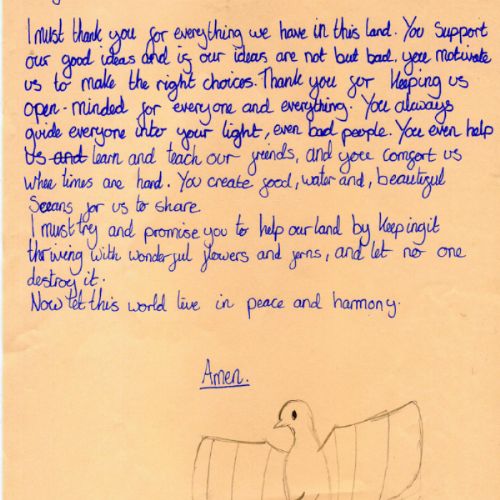 I must thank you for everything we have in this land. You support
our good ideas and if our ideas are not but bad, you motivate
us to make the right choices. Thank you for keeping us
open-minded for everyone and everything. You always
guide everyone into your light, even bad people. You even help
us and learn and teach our friends, and you comfort us
when times are hard. You create food, water and, beautiful
Seeans for us to share
I must try and promise you to help our land by keeping it
thriving with wonderful flowers and ferns, and let no one
destroy it.
Now let this world live in peace and harmony.
Amen.